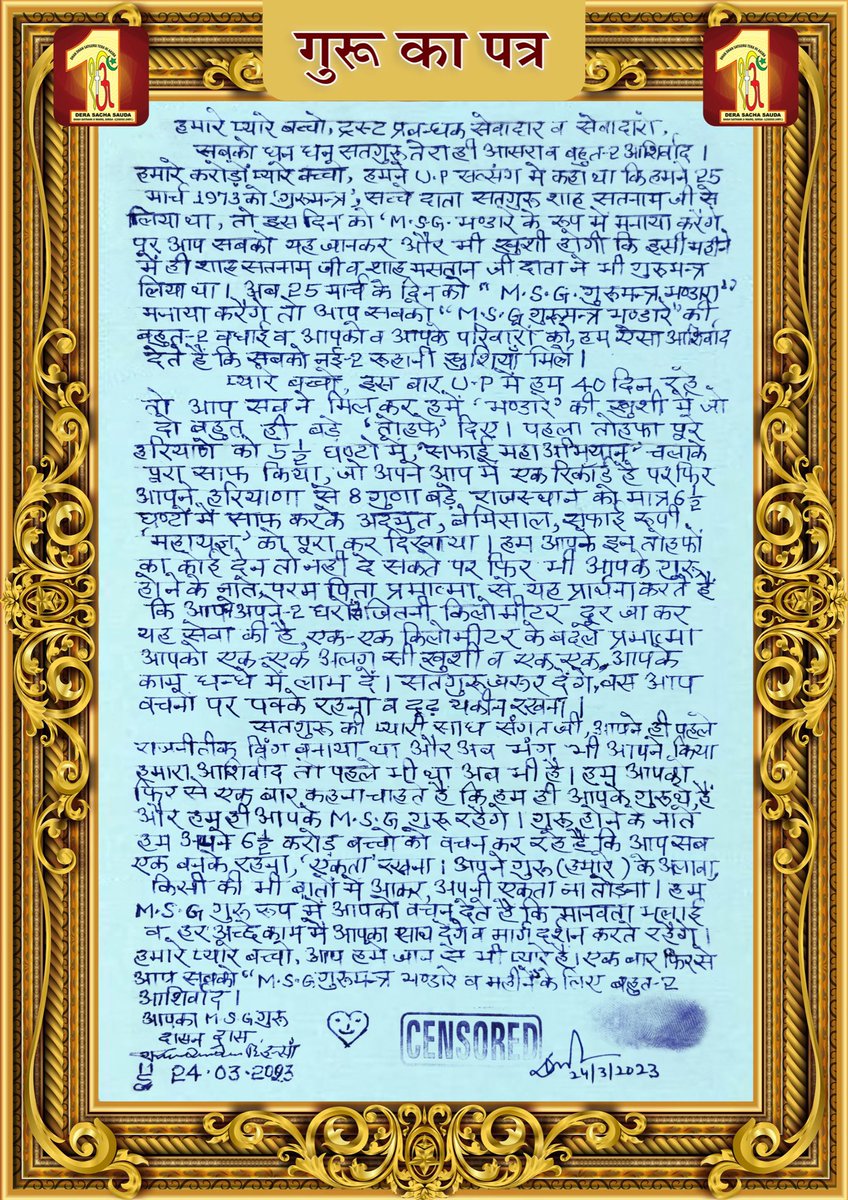 गुरू का पत्र
DERA SACHA SAUDA
DERA SACHA SAUDA
हमारे प्यारे बच्चो, ट्रस्ट प्रबन्धक सेवादार व सेवादारों,
सबको धन धन सतगुरु तेरा ही आसरा व बहुत-2 आशिर्वाद।
हमारे करोड़ों प्यारे बच्चो, हमने U.P सत्संग में कहा था कि हमने 25
मार्च 1973 को 'गुरुमन्त्र', सच्चे दाता सतगुरु शाह सतनाम जी से
लिया था, तो इस दिन को 'M.S.G. भण्डारे' के रूप में मनाया करेंगे
पर आप सबको यह जानकर और भी खुशी होगी कि इसी महीने
में ही शाह सतनाम जी व शाह मसतान जी दाता ने भी गुरुमन्त्र
लिया था। अब 25 मार्च के दिन को "M.S.G. गुरुमन्त्र भण्डारा"
मनाया करेंगे तो आप सबको "M.S.G गुरुमन्त्र भण्डारे" की
बहुत-2 बधाई व आपको व आपके परिवारों को, हम ऐसा आशिर्वाद
देते हैं कि सबको नई-2 रूहानी खुशियाँ मिलें।
प्यारे बच्चो, इस बार U.P में हम 40 दिन रहे
तो आप सब ने मिल कर हमें 'भण्डारे' की खुशी में जो
दो बहुत ही बड़े 'तोहफे' दिए। पहला तोहफा पूरे
हरियाणे को 5 1/2 घण्टों में, 'सफाई महाअभियान' चलाके
पूरा साफ किया, जो अपने आप में एक रिकार्ड है पर फिर
आपने, हरियाणा से 8 गुणा बड़े, राजस्थान को मात्र 6 1/2
घण्टों में साफ करके अदभुत, बेमिसाल, सफाई रूपी
'महायज्ञ' को पूरा कर दिखाया। हम आपके इन तोहफों
का कोई देन तो नहीं दे सकते पर फिर भी आपके गुरु
होने के नाते, परम पिता प्रमात्मा से, यह प्रार्थना करते हैं
कि आप अपने-2 घर से जितनी किलोमीटर दूर जा कर
यह सेवा की है, एक-एक किलोमीटर के बदले प्रमात्मा
आपको एक एक अलग सी खुशी व एक एक, आपके
काम धन्धे में लाभ दें। सतगुरु जरूर देंगे, बस आप
वचनों पर पक्के रहना व दृढ़ यकीन रखना।
सतगुरु की प्यारी साध संगत जी, आपने ही पहले
राजनीतीक विंग बनाया था और अब भंग भी आपने किया
हमारा आशिर्वाद तो पहले भी था अब भी है। हम आपको
फिर से एक बार कहना चाहते हैं कि हम ही आपके गुरु थे, हैं
और हम ही आपके M.S.G गुरु रहेंगे। गुरु होने के नाते
हम अपने 6 1/2 करोड़ बच्चों को वचन कर रहे हैं कि आप सब
एक बनके रहना, 'एकता' रखना। अपने गुरु (हमारे) के अलावा,
किसी की भी बातों में आकर, अपनी एकता ना तोड़ना। हम
M.S.G गुरु रूप में आपको वचन देते हैं कि मानवता भलाई
व हर अच्छे काम में आपका साथ देंगे व मार्ग दर्शन करते रहेंगे।
हमारे प्यारे बच्चो, आप हमें जान से भी प्यारे हैं। एक बार फिर से
आप सबको "M.S.G गुरुमन्त्र भण्डारे व महीने के लिए बहुत-2
आशिर्वाद।
आपका M.S.G गुरु
दासन दास
24.03.2023
CENSORED
24/3/2023